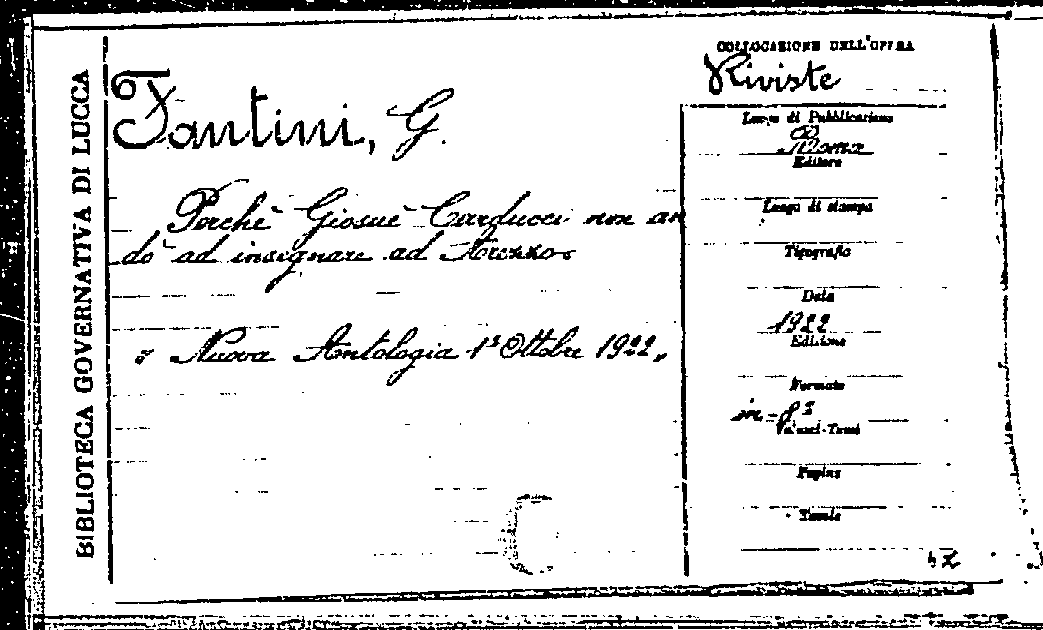 BIBLIOTECA GOVERNATIVA DI LUCCA
Fantini, G.
Perchè Giosuè Carducci non an
dò ad insegnare ad Arezzo
Nuova Antologia 1º Ottobre 1922,
COLLOCAZIONE DELL'OPERA
Riviste
Luogo di Pubblicazione
Roma
Editore
Luogo di stampa
Tipografia
Data
1922
Edizione
Formato
in-8º
Volumi-Tomi
Pagine
Tavole